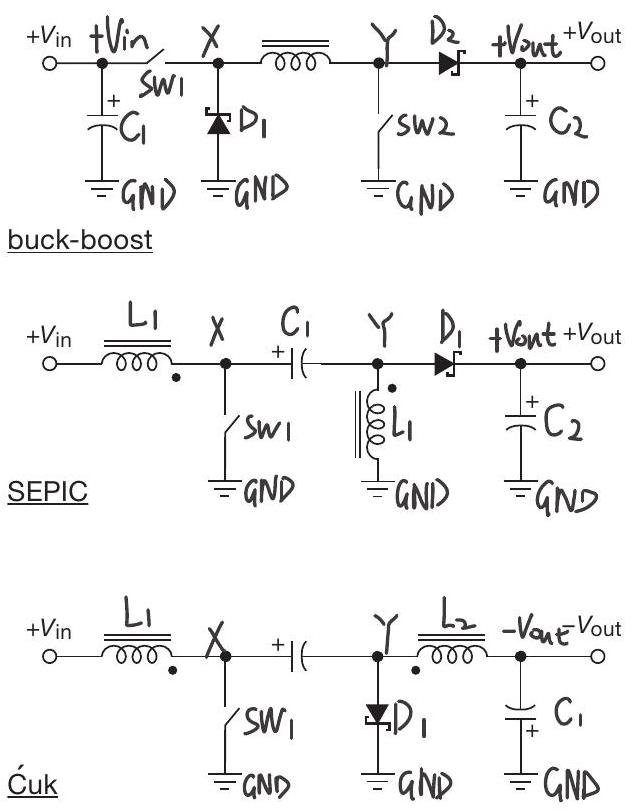 +Vin +Vin X Y D2 +Vout +Vout
SW1
+ C1 D1 SW2 + C2
GND GND GND GND
buck-boost
L1
+Vin X C1 Y D1 +Vout +Vout
+
SW1 L1 + C2
GND GND GND
SEPIC
L1 L2
+Vin X + Y -Vout -Vout
SW1 D1 C1
+
GND GND GND
Ćuk